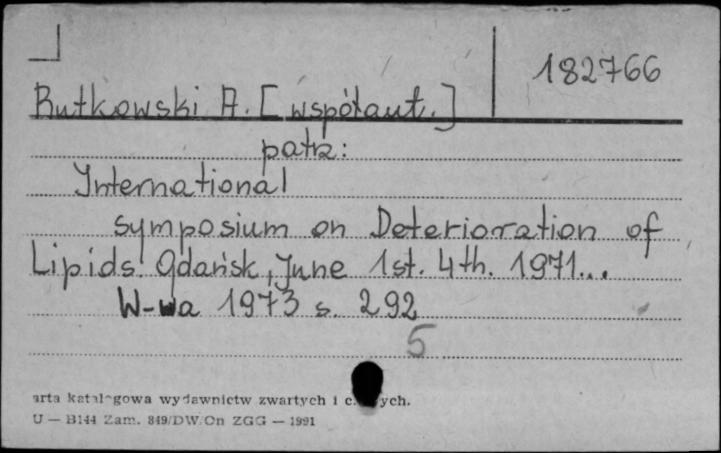 182766
Rutkowski A. [współaut.]
patrz:
International
symposium on Deterioration of
Lipids. Gdańsk, June 1st. 4th. 1971...
W-wa 1973 s. 292
5
arta katalogowa wydawnictw zwartych i c. ych.
U — B144 Zam. 849/DW/On ZGG — 1991